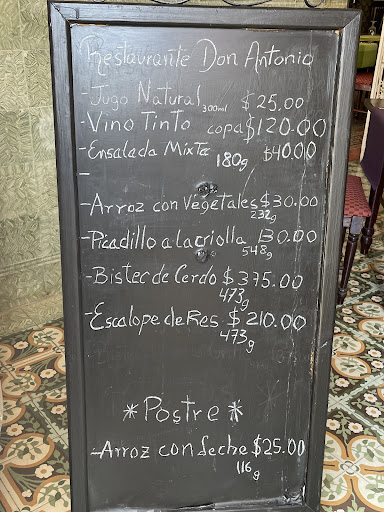 Restaurante Don Antonio
- Jugo Natural 300ml $25.00
- Vino Tinto copa $120.00
- Ensalada Mixta 180g $40.00
-
- Arroz con Vegetales $30.00
232g
- Picadillo a la criolla 130.00
548g
- Bistec de Cerdo $375.00
473g
- Escalope de Res $210.00
473g
*Postre*
- Arroz con leche $25.00
116g